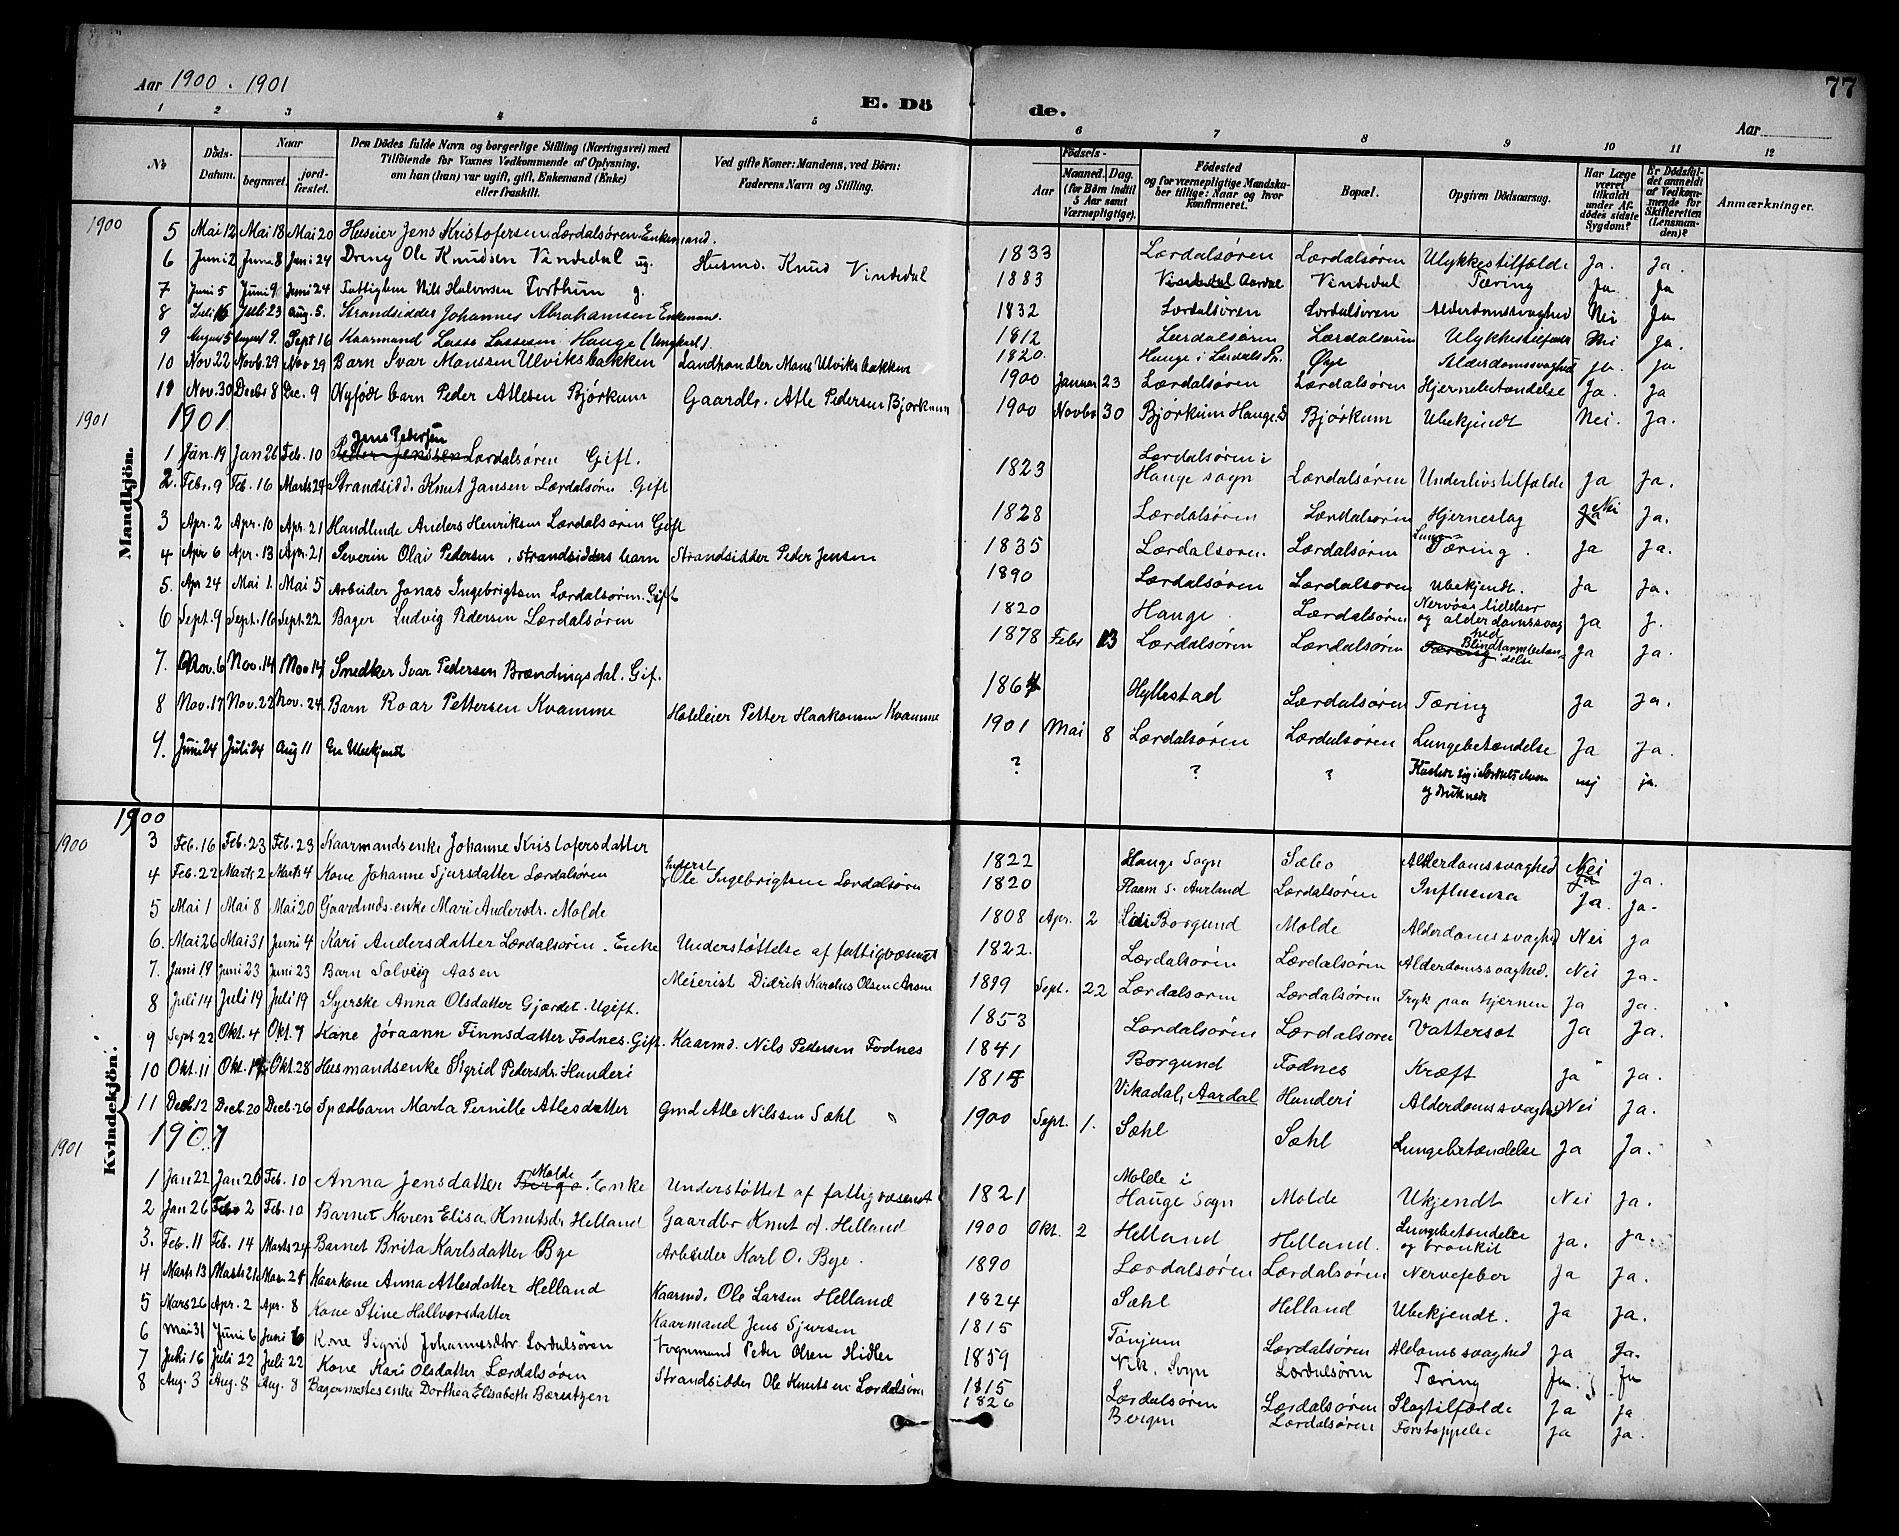 Aar 1900 - 1901
E. Dö
de.
Aar
77
1 2 3 4 5 6 7 8 9 10 11 12
No
Döds-Datum.
Naar
begravet.
jord-fæstet.
Den Dödes fulde Navn og borgerlige Stilling (Næringsvei) med Tilföiende for Voxnes Vedkommende af Oplysning, om han (hun) var ugift, gift, Enkemand (Enke) eller fraskilt.
Ved gifte Koner: Mandens, ved Börn: Faderens Navn og Stilling.
Födsels-
Aar
Maaned. Dag.
(for Börn indtil 5 Aar samt Værnepligtige).
Födested og for værnepligtige Mandskaber tillige: Naar og hvor konfirmeret.
Bopæl.
Opgiven Dödsaarsag.
Har Læge været tilkaldt under Afdödes sidste Sygdom?
Er Dödsfaldet anmeldt af Vedkommende for Skifteretten (Lensmanden)?
Anmærkninger.
Mandkjön.
1900
5 Mai 12 Mai 18 Mai 20 Huseier Jens Kristofersen Lærdalsøren Enkemand. 1833 Lærdalsøren Lærdalsøren Ulykkestilfælde Ja. Ja.
6 Juni 2 Juni 8 Juni 24 Dreng Ole Knudsen Vindedal ug. Husmd. Knud Vindedal 1883 Vindedal Aardal Vindedal Tæring Ja Ja
7 Juni 5 Juni 9 Juni 24 Fattiglem Nils Halvorsen Torthun g. 1832 Lærdalsøren Lærdalsøren Alderdomssvaghed Nei Ja
8 Juli 16 Juli 23 Aug. 5. Strandsidder Johannes Abrahamsen Enkemand. 1812 Lærdalsøren Lærdalsøren Ulykkestilfælde Nei Ja.
9 August 5 August 9. Sept 16 Kaarmand Lasse Lassesen Hauge (Ungkarl). 1820. Hauge i Lærdals Pr. Øye Alderdomssvaghed Ja. Ja
10 Nov. 22 Novb. 29 Nov 29 Barn Ivar Monssen Ulviksbakken Landhandler Mons Ulviksbakken 1900 Januar 23 Lærdalsøren Lærdalsøren Hjernebetændelse Ja. Ja
11 Nov. 30 Decbr 8 Dec. 9 Nyfødt barn Peder Atlesen Bjørkum Gaardbr. Atle Pedersen Bjørkum 1900 Novbr 30 Bjørkum Hauge S Bjørkum Ubekjendt Nei. Ja.
1901 1901
1 Jan. 19 Jan 26 Feb. 10 Jens Pedersen Petter Jenssen Lærdalsøren Gift. 1823 Lærdalsøren i Hauge sogn Lærdalsøren Underlivstilfælde Ja Ja.
2. Febr. 9 Feb. 16 Marts 24 Strandsidd. Knut Jansen Lærdalsøren Gift 1828 Lærdalsøren Lærdalsøren Hjerneslag Ja Nei Ja.
3 Apr. 2 Apr. 10 Apr. 21 Handlende Anders Henriksen Lærdalsøren Gift 1835 Lærdalsøren Lærdalsøren Lunge- Tæring. Ja Ja.
4 Apr 6 Apr. 13 Apr. 21 Severin Olai Pedersen, strandsidders barn Strandsidder Peder Jensen 1890 Lærdalsøren Lærdalsøren Ubekjendt. Ja Ja.
5. Apr 24 Mai 1. Mai 5 Arbeider Jonas Ingebrigtsen Lærdalsøren. Gift 1820 Hauge. Lærdalsøren Nervøse lidelser og alderdomssvaghed Ja J.
6 Sept. 9 Sept. 16 Sept. 22 Bager Ludvig Pedersen Lærdalsøren 1878 Febr 13 Lærdalsøren Lærdalsøren Tæring Blindtarmbetændelse Ja Ja.
7. Nov. 6 Nov. 14 Nov 14 Snedker Ivar Pedersen Brændingsdal. Gif. 1864 Hyllestad Lærdalsøren Tæring Ja Ja.
8 Nov. 17 Nov. 22 Nov. 24 Barn Roar Pettersen Kvamme Hoteleier Petter Haakonsen Kvamme 1901 Mai 8 Lærdalsøren Lærdalsøren Lungebetændelse Ja Ja.
9. Juni 24 Juli 24 Aug 11 En Ubekjendt ? ? ? Kastede sig i Lærdalselven og druknede nej ja.
Kvindekjön.
1900 1900
3 Feb. 16 Feb. 23 Feb. 23 Kaarmandsenke Johanne Kristofersdatter 1822 Hauge Sogn Sæbo Alderdomssvaghed Nei Ja Ja.
4 Feb. 22 Marts 2 Marts 4 Kone Johanne Sjursdatter Lærdalsøren Inderst Ole Ingebrigtsen Lærdalsøren 1820 Flaam S. Aurland Lærdalsøren Influensa Ja. Ja.
5 Mai 1 Mai 8 Mai 20 Gaardmdsenke Mari Andersdr. Molde 1808 Apr. 2 Borgund Molde Alderdomssvaghed Nei Ja
6. Mai 26 Mai 31 Juni 4 Kari Andersdatter Lærdalsøren. Enke Understøttelse af fattigvæsenet 1822. Lærdalsøren Lærdalsøren Alderdomssvaghed. Nei Ja.
7. Juni 19 Juni 23 Juni 23 Barn Solveig Aasen Meierist Didrik Karolus Olsen Aasen 1899 Sept. 22 Lærdalsøren Lærdalsøren Tryk paa hjernen Ja Ja.
8 Juli 14 Juli 19 Juli 19 Syerske Anna Olsdatter Gjærdet. Ugift. 1853 Lærdalsøren Lærdalsøren Vattersot Ja Ja.
9 Sept 22 Okt. 4 Okt. 7 Kone Jóraann Finnsdatter Fodnes. Gift. Kaarmd. Nils Pedersen Fodnes 1841 Borgund Fodnes Kræft Ja Ja.
10 Okt. 11 Okt. 19 Okt. 28 Husmandsenke Sigrid Pedersdr. Hunderi 1817 Vikadal, Aardal Hunderi Alderdomssvaghed Nei Ja.
11 Decb. 12 Decb. 20 Decb. 26 Spædbarn Marta Pernille Atlesdatter Gmd Atle Nilssen Sæhl " 1900 Sept. 1. Sæhl Sæhl Lungebetændelse Ja Ja.
1901 1901
1 Jan 22 Jan 26 Feb. 10 Anna Jensdatter Molde. Enke Understøttet af fattigvæsenet 1821 Molde i Hauge Sogn Molde Ukjendt Nei Ja.
2 Jan 26 Feb 2 Feb. 10 Barnet Karen Elisa Knutsdr Helland Gaardbr Knut O. Helland 1900 Okt. 2 Helland Helland. Lungebetændelse og bronkit Ja. Ja.
3. Feb. 11 Feb. 14 Marts 24 Barnet Brita Karlsdatter Bye Arbeider Karl O. Bye. 1890 Lærdalsøren Lærdalsøren Nervefeber Ja Ja.
4 Marts 13 Marts 21 Mar. 24 Kaarkone Anna Atlesdatter Helland Kaarmd. Ole Larsen Helland 1824 Sæhl Helland Ubekjendt. Ja Ja.
5 Mars 26 Apr. 2 Apr. 8 Kone Stine Hallvorsdatter Kaarmand Jens Sjursen 1815 Tønjum Lærdalsøren Aldomssvaghed Ja Ja.
6 Mai 31 Juni 6 Juni 16 Kone Sigrid Johannesdtr. Lærdalsøren Vognmand Peder Olsen Hidler 1859 Vik. Sogn Lærdalsøren Tæring Ja. Ja
7 Juli 16 Juli 22 Juli 22 Kone Kari Olsdatter Lærdalsøren Strandsidder Ole Knutsen Lærdalsøren 1815 Lærdalsøren Lærdalsøren Slagtilfælde Ja Ja
8 Aug. 3 Aug. 8 Aug. 8 Bagermestesenke Dorthea Elisabeth Bærntzen 1826 Bergen Lærdalsøren Forstoppelse Ja Ja.